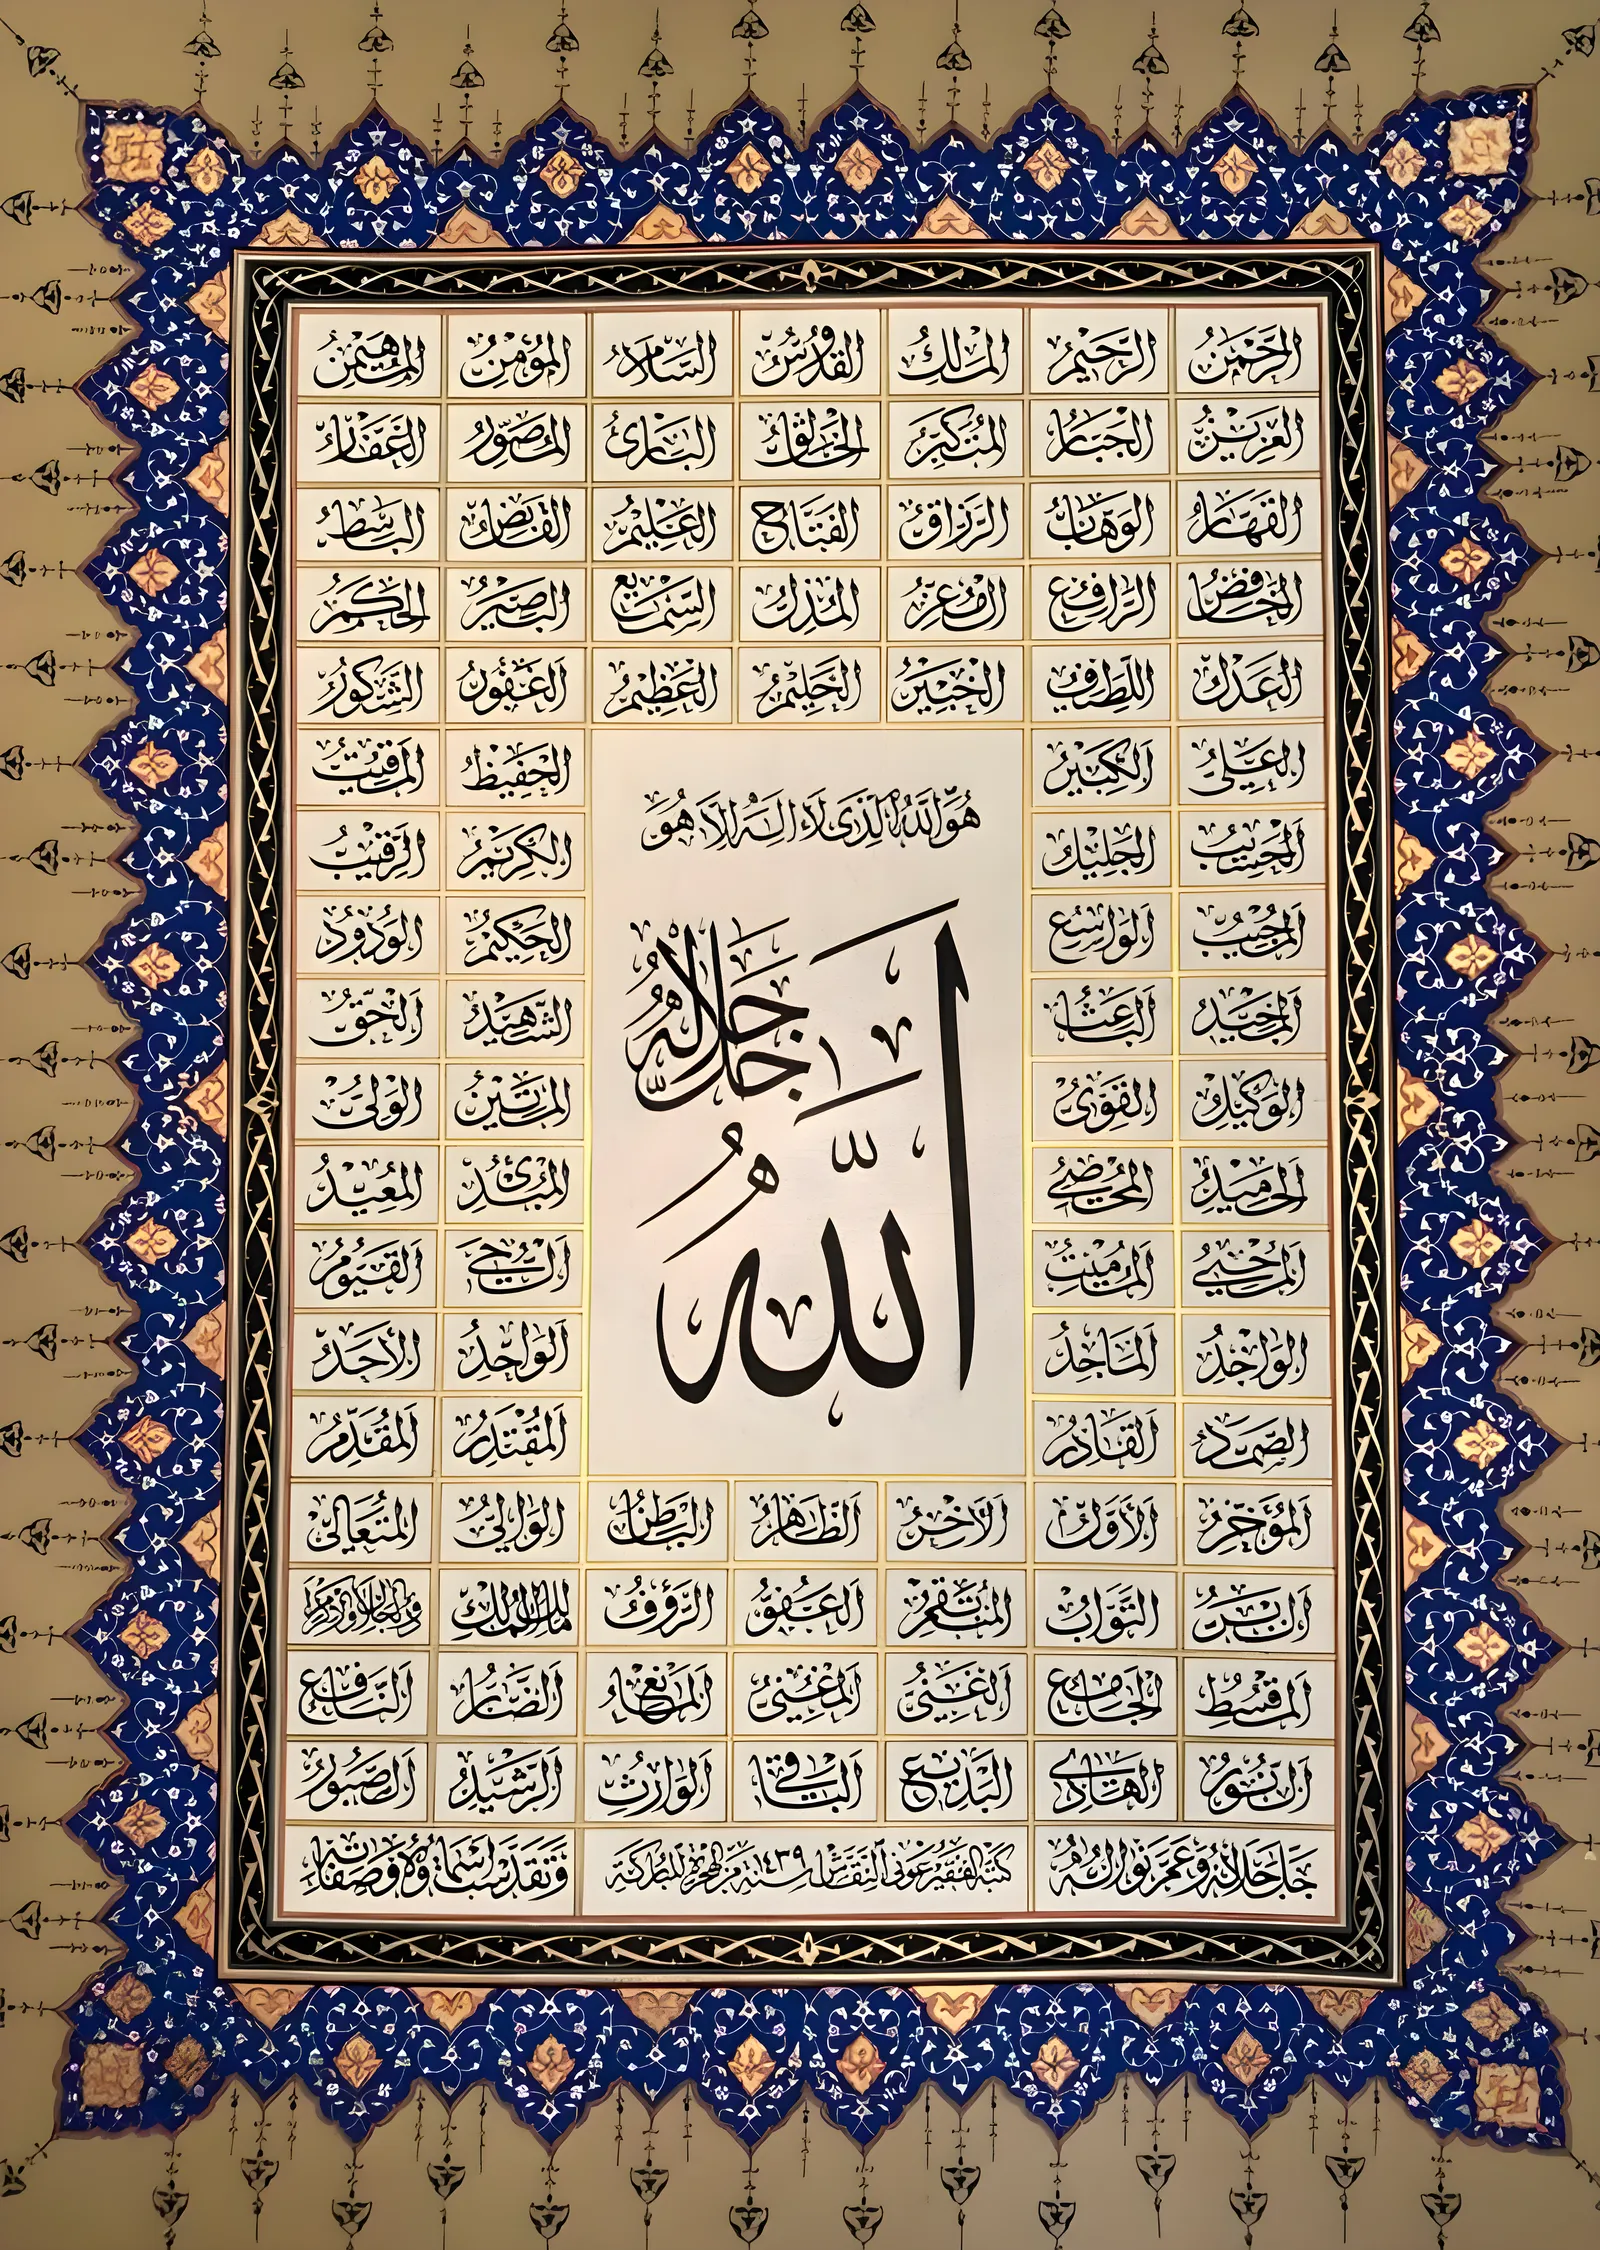 الرَّحْمٰنُ الرَّحِيْمُ المَلِكُ القُدُّوسُ السَّلَامُ المُؤْمِنُ المُهَيْمِنُ
العَزِيْزُ الجَبَّارُ المُتَكَبِّرُ الخَالِقُ البَارِئُ المُصَوِّرُ الغَفَّارُ
القَهَّارُ الوَهَّابُ الرَّزَّاقُ الفَتَّاحُ العَلِيْمُ القَابِضُ البَاسِطُ
الخَافِضُ الرَّافِعُ المُعِزُّ المُذِلُّ السَّمِيْعُ البَصِيْرُ الحَكَمُ
العَدْلُ اللَّطِيْفُ الخَبِيْرُ الحَلِيْمُ العَظِيْمُ الغَفُوْرُ الشَّكُوْرُ
العَلِيُّ الكَبِيْرُ الحَفِيْظُ المُقِيْتُ
هُوَ اللّٰهُ الَّذِى لَا اِلٰهَ اِلَّا هُوَ
الحَسِيْبُ الجَلِيْلُ الكَرِيْمُ الرَّقِيْبُ
المُجِيْبُ الوَاسِعُ الحَكِيْمُ الوَدُوْدُ
اللّٰهُ جَلَّ جَلَالُهُ
المَجِيْدُ البَاعِثُ الشَّهِيْدُ الحَقُّ
الوَكِيْلُ القَوِىُّ المَتِيْنُ الوَلِىُّ
الحَمِيْدُ المُحْصِىْ المُبْدِئُ المُعِيْدُ
المُحْيِىْ المُمِيْتُ الحَىُّ القَيُّوْمُ
الوَاجِدُ المَاجِدُ الوَاحِدُ الأَحَدُ
الصَّمَدُ القَادِرُ المُقْتَدِرُ المُقَدِّمُ
المُؤَخِّرُ الأَوَّلُ الآخِرُ الظَّاهِرُ البَاطِنُ الوَالِيْ المُتَعَالِىْ
البَرُّ التَّوَّابُ المُنْتَقِمُ العَفُوُّ الرَّؤُفُ مَالِكُ المُلْكِ ذُو الجَلَالِ وَالإِكْرَامِ
المُقْسِطُ الجَامِعُ الغَنِىُّ المُغْنِىْ المَانِعُ الضَّارُّ النَّافِعُ
النُّوْرُ الهَادِىْ البَدِيْعُ البَاقِىْ الوَارِثُ الرَّشِيْدُ الصَّبُوْرُ
جَلَّ جَلَالُهُ وَعَمَّ نَوَالُهُ كتبه الفقير عونى النقاش سنة ١٤٣٩ من الهجرة المباركة وَتَقَدَّسَتْ اَسْمَاؤُهُ وَصِفَاتُهُ